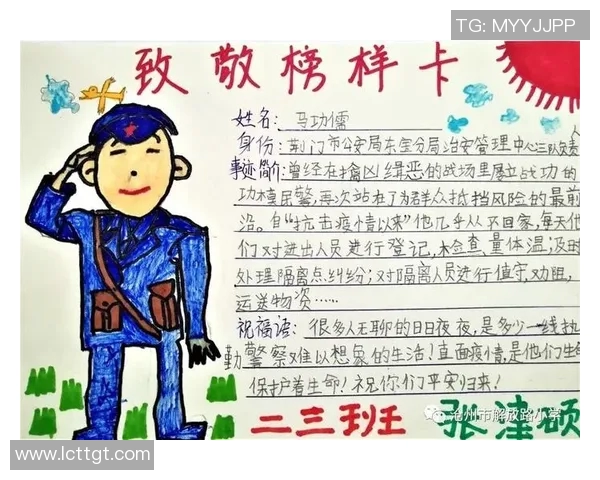 TG: MYYJJPP
致敬榜样卡
姓名: 马功儒
身份: 荆门市公安局东宝分局治安管理中心三队负责人
事迹简介:曾经在擒凶缉恶的战场里屡立战功的
功模民警,再次站在了为群众抵挡风险的最前
沿。自“抗击疫情以来”他几乎从不回家,每天他
们对进出人员进行登记,检查,量体温;及时
处理隔离点纠纷;对隔离人员进行值守,劝阻,
运送物资……
祝福语:很多人无聊的日日夜夜,是多少一线抗
勤警察难以想象的生活!直面疫情,是他们生命
保护着生命!祝你们平安归来!
二三班 张 硕
沧州市解放路小学
www.lcttgt.com